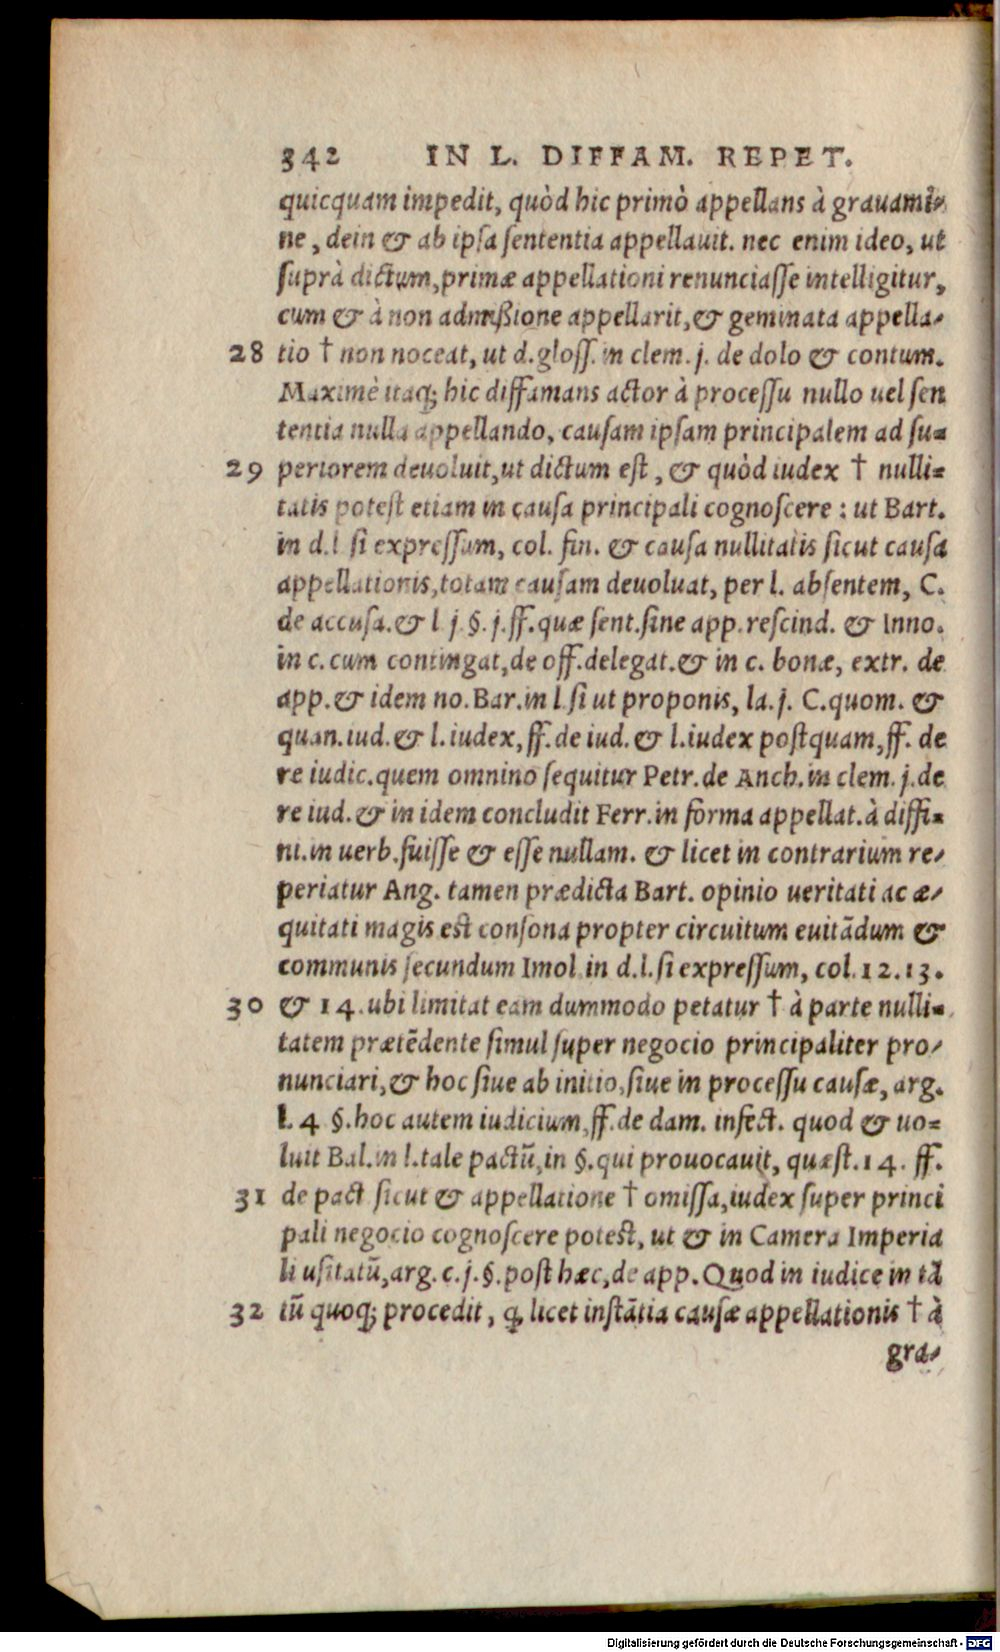 342 IN L. DIFFAM. REPET.
quicquam impedit, quòd hic primò appellans à grauami-
ne, dein & ab ipſa ſententia appellauit. nec enim ideo, ut
ſuprà dictum, primæ appellationi renunciaſſe intelligitur,
cum & à non admißione appellarit, & geminata appella-
28 tio † non noceat, ut d. gloſſ. in clem. j. de dolo & contum.
Maximè itaq; hic diffamans actor à proceſſu nullo uel ſen
tentia nulla appellando, cauſam ipſam principalem ad ſu-
29 periorem deuoluit, ut dictum eſt, & quòd iudex † nulli-
tatis poteſt etiam in cauſa principali cognoſcere: ut Bart.
in d. l ſi expreſſum, col. fin. & cauſa nullitatis ſicut cauſa
appellationis, totam cauſam deuoluat, per l. abſentem, C.
de accuſa. & l j. §. j. ff. quæ ſent. ſine app. reſcind. & Inno.
in c. cum contingat, de off. delegat. & in c. bonæ, extr. de
app. & idem no. Bar. in l ſi ut proponis, la. j. C. quom. &
quan. iud. & l. iudex, ff. de iud. & l. iudex poſtquam, ff. de
re iudic. quem omnino ſequitur Petr. de Anch. in clem. j. de
re iud. & in idem concludit Ferr. in forma appellat. à diffi-
ni. in uerb. fuiſſe & eſſe nullam. & licet in contrarium re-
periatur Ang. tamen prædicta Bart. opinio ueritati ac æ-
quitati magis est conſona propter circuitum euitādum &
communis ſecundum Imol in d. l. ſi expreſſum, col. 12. 13.
30 & 14. ubi limitat eam dummodo petatur † à parte nulli-
tatem prætēdente ſimul ſuper negocio principaliter pro-
nunciari, & hoc ſiue ab initio, ſiue in proceſſu cauſæ, arg.
l. 4 §. hoc autem iudicium, ff. de dam. infect. quod & uo-
luit Bal. in l. tale pactū, in §. qui prouocauit, quæſt. 14. ff.
31 de pact ſicut & appellatione † omiſſa, iudex ſuper princi
pali negocio cognoſcere potest, ut & in Camera Imperia
li uſitatū, arg. c. j. §. poſt hæc, de app. Quod in iudice in tā
32 tū quoq; procedit, ꝙ licet inſtātia cauſæ appellationis † à
gra-
Digitalisierung gefördert durch die Deutsche Forschungsgemeinschaft - DFG